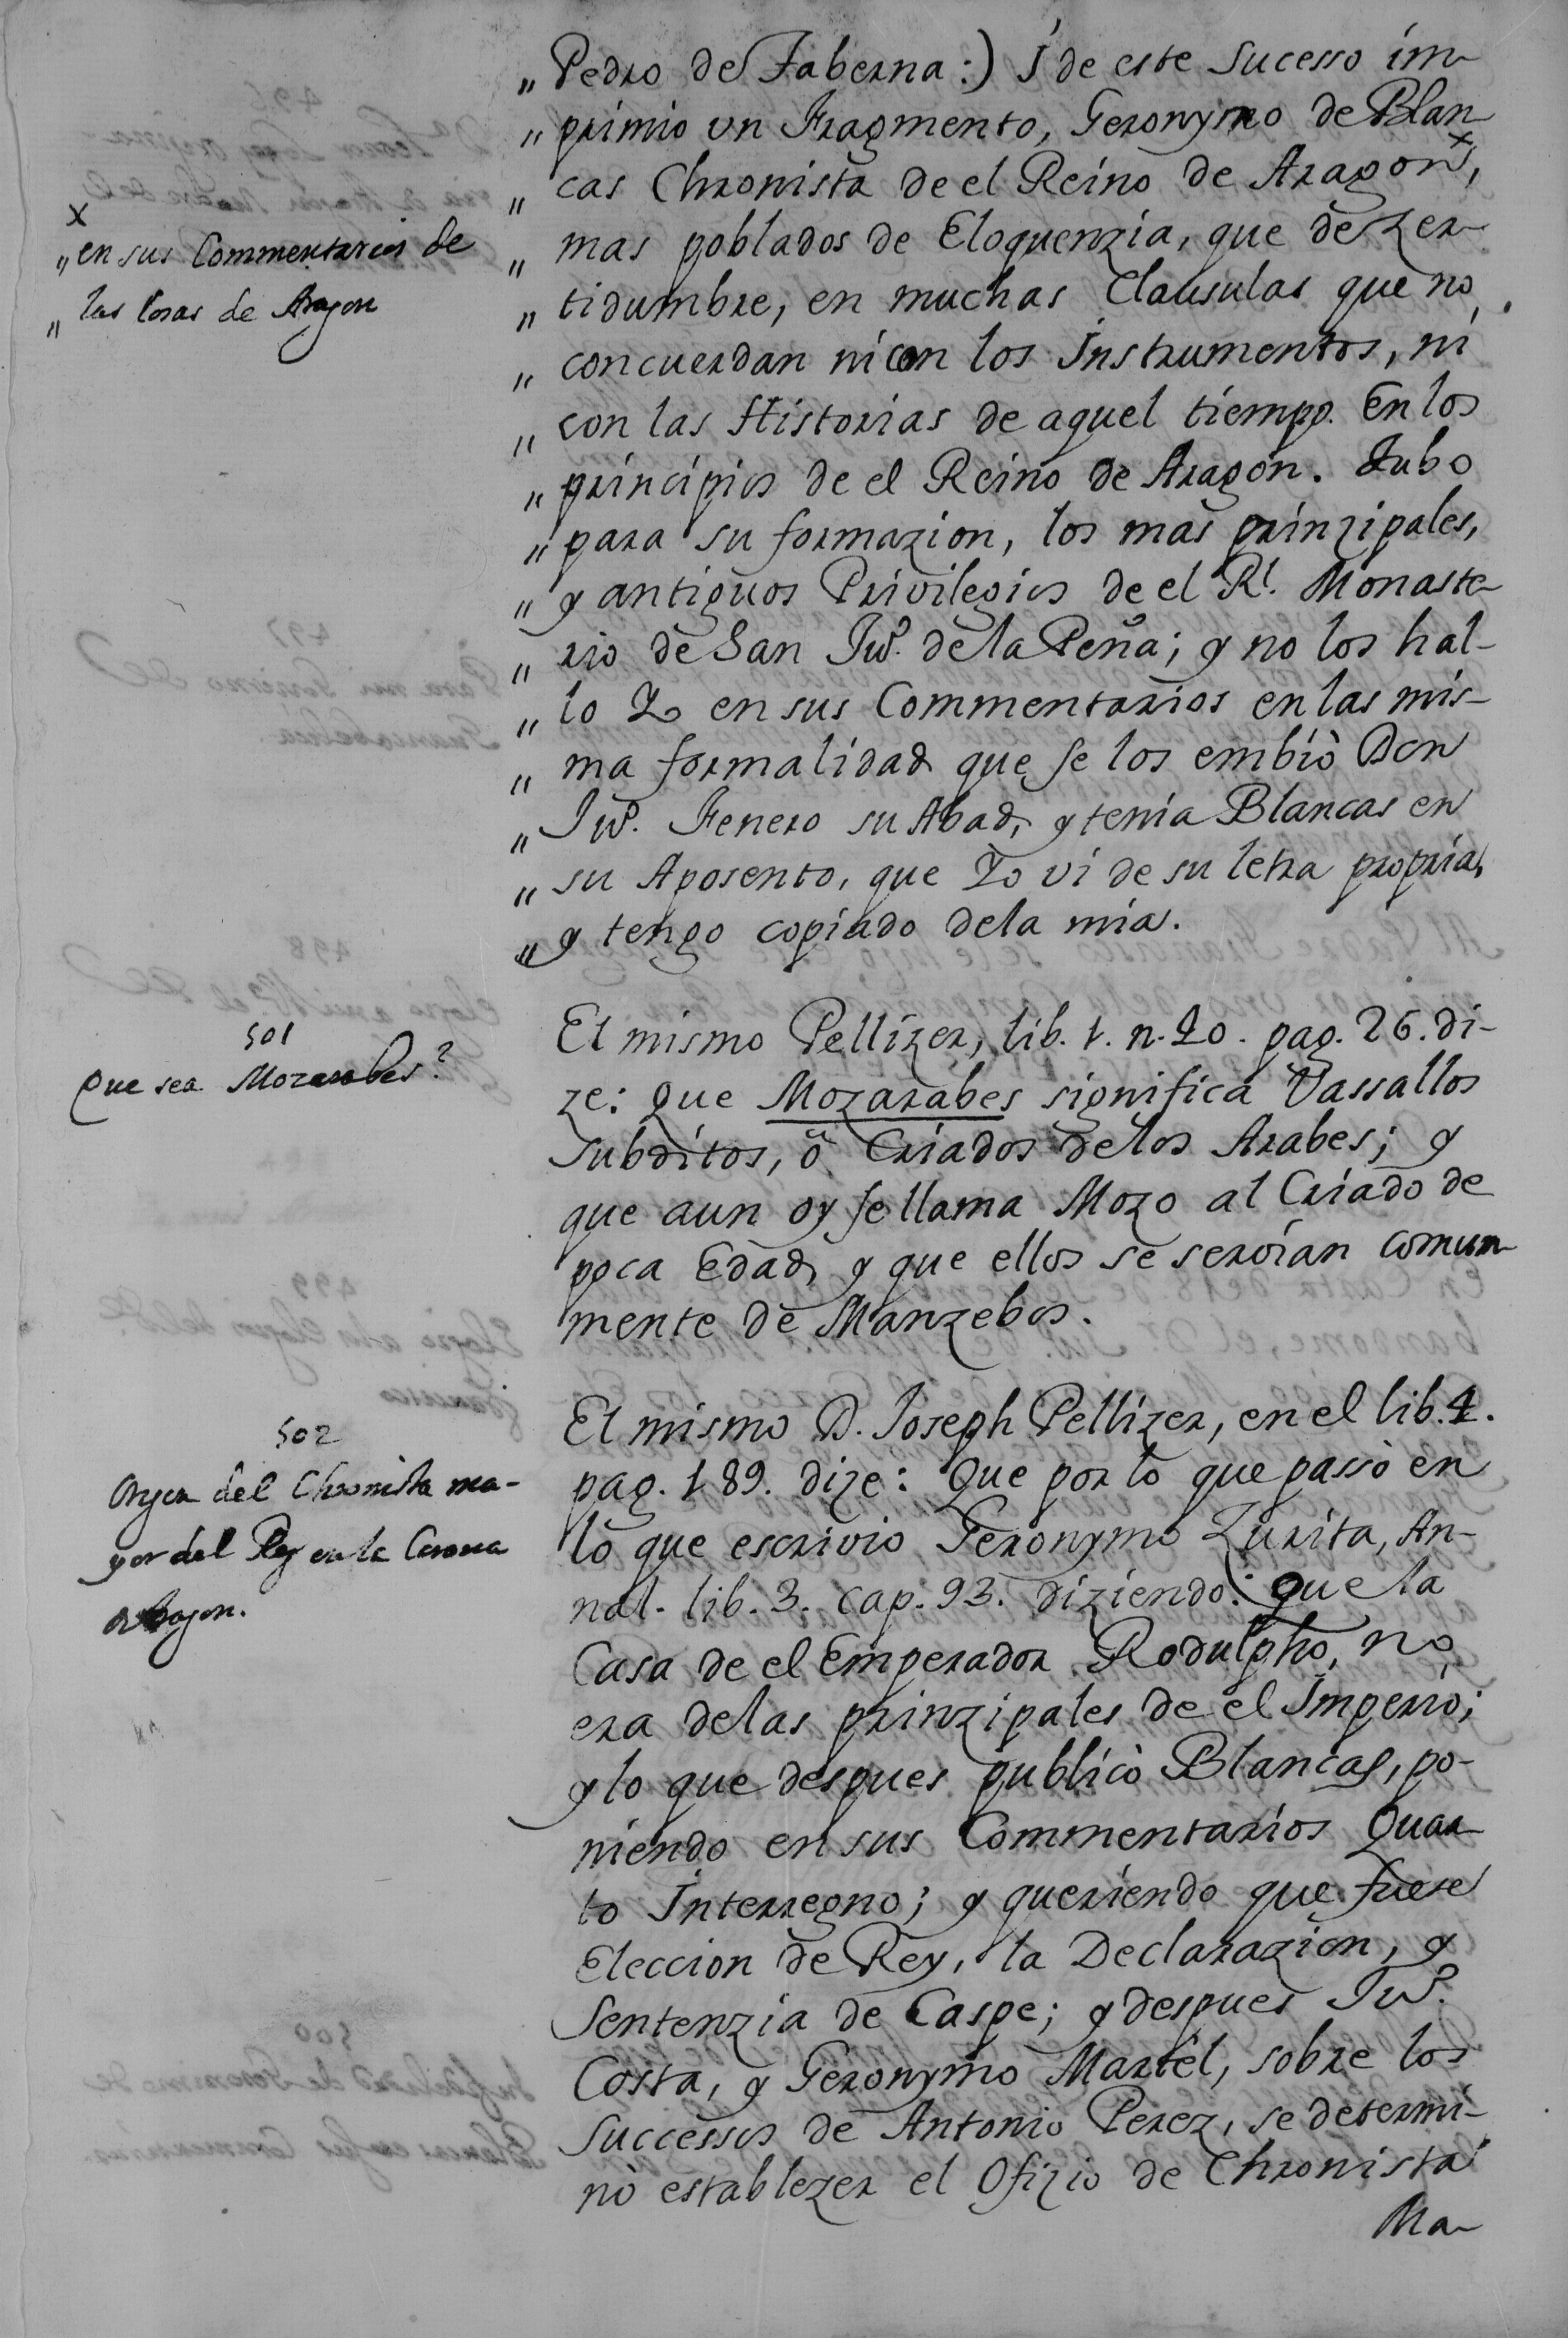 „ Pedro de Taberna:) I de este Sucesso im-
„ primio vn Fragmento, Geronymo de Blan
„ cas Chronista de el Reino de Aragon,ˣ
„ mas poblados de Eloquenzia, que de Zer-
„ tidumbre, en muchas Clausulas que no
„ concuerdan ni con los Instrumentos, ni
„ con las Historias de aquel tiempo. En los
„ principios de el Reino de Aragon. Tubo
„ para su formazion, los mas prinzipales,
„ y antiguos Privilegios de el Rl. Monaste-
„ rio de San Juº. de la Peña; y no los hal-
„ lo Yo en sus Commentarios en las mis-
„ ma formalidad que se los embiò Don
„ Juº. Fenero su Abad, y tenia Blancas en
„ su Aposento, que Yo vi de su letra propria,
„ y tengo copiado dela mia.
x
„ en sus Commentarios de
„ las Cosas de Aragon
501
Que sea Mozarabes?
El mismo Pellizer, lib. 1. n. 20. pag. 26. di-
ze: Que Mozarabes significa Vassallos
Subditos, ò Criados delos Arabes; y
que aun oy se llama Mozo al Criado de
poca Edad, y que ellos se servian comun-
mente de Manzebos.
502
Orijen del Chronista ma-
yor del Rey en la Corona
de Aragon.
El mismo D. Joseph Pellizer, en el lib. 4.
pag. 189. dize: Que por lo que passò en
lo que escrivio Geronymo Zurita, An-
nal. lib. 3. cap. 93. diziendo: que la
Casa de el Emperador Rodulpho, no
era delas prinzipales de el Imperio;
y lo que despues publicò Blancas, po-
niendo en sus Commentarios Quar-
to Interregno; y queriendo que fuese
Eleccion de Rey, la Declarazion, y
Sentenzia de Caspe; y despues Juº.
Costa, y Geronymo Martel, sobre los
Successos de Antonio Perez, se determi-
nò establezer el Ofizio de Chronista
Ma-